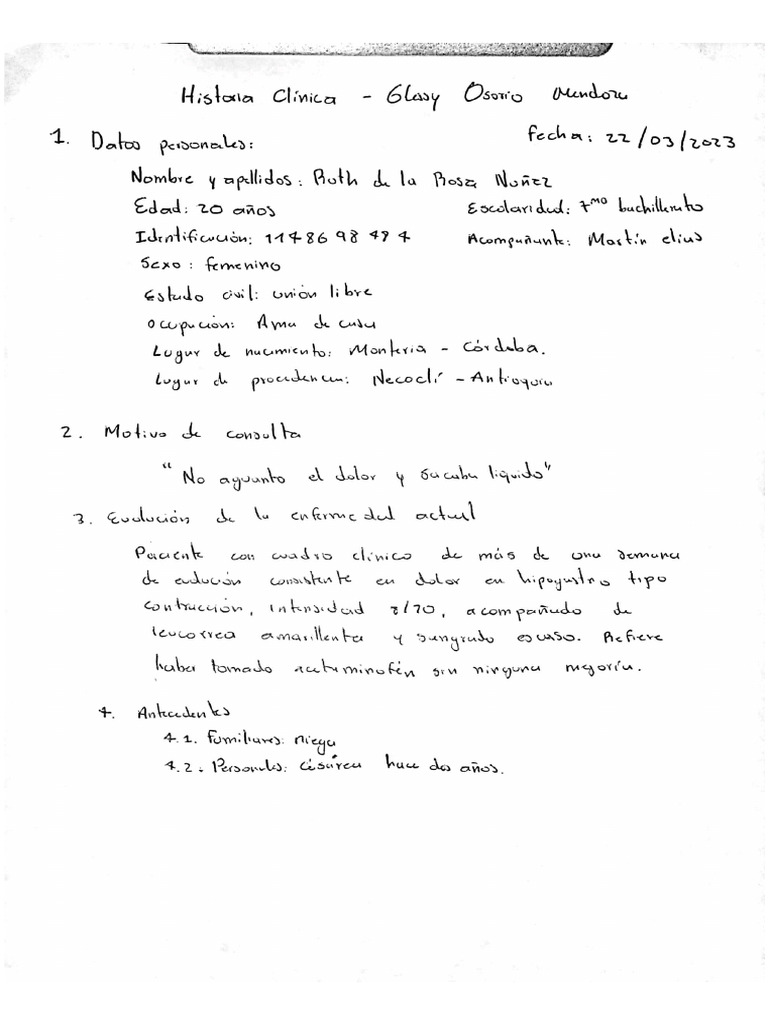 Historia Clínica - Glasy Osorio Mendoza
fecha: 22/03/2023
1. Datos personales:
Nombre y apellidos: Ruth de la Rosa Nuñez
Edad: 20 años
Escolaridad: 7mo bachillerato
Identificación:
Acompañante: Martín elias
Sexo: femenino
Estado civil: unión libre
Ocupación: Ama de casa
Lugar de nacimiento: Montería - Córdoba.
Lugar de procedencia: Necoclí - Antioquia
2. Motivo de consulta
"No aguanto el dolor y sacaba liquido"
3. Evolución de la enfermedad actual
Paciente con cuadro clínico de más de una semana
de evolución consistente en dolor en hipogastro tipo
contracción, intensidad 8/10, acompañado de
leucorrea amarillenta y sangrado escaso. Refiere
haber tomado acetaminofén sin ninguna mejoría.
4. Antecedentes
4.1. Familiares: niega
4.2. Personales: cesárea hace dos años.